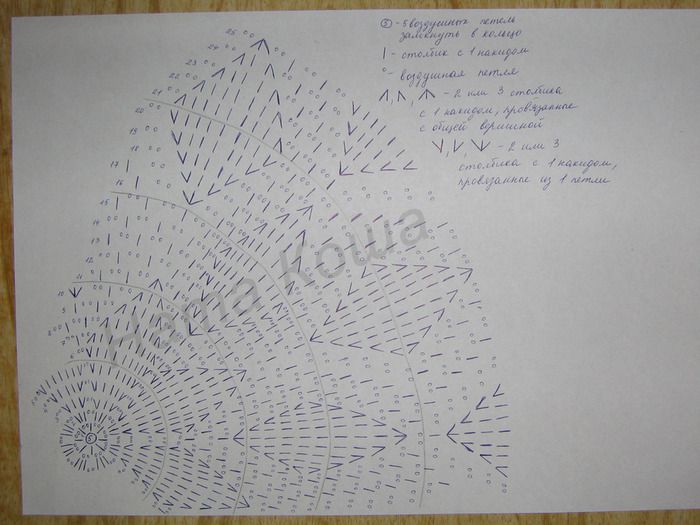 ⑤ - 5 воздушных петель
замкнуть в кольцо
| - столбик с 1 накидом
° - воздушная петля
- 2 или 3 столбика
с 1 накидом, провязанные
с общей вершиной
- 2 или 3
столбика с 1 накидом,
провязанные из 1 петли
25
24
23
22
21
20
19
18
17
16
15
14
13
12
11
10
9
8
7
6
5
Ната Коша